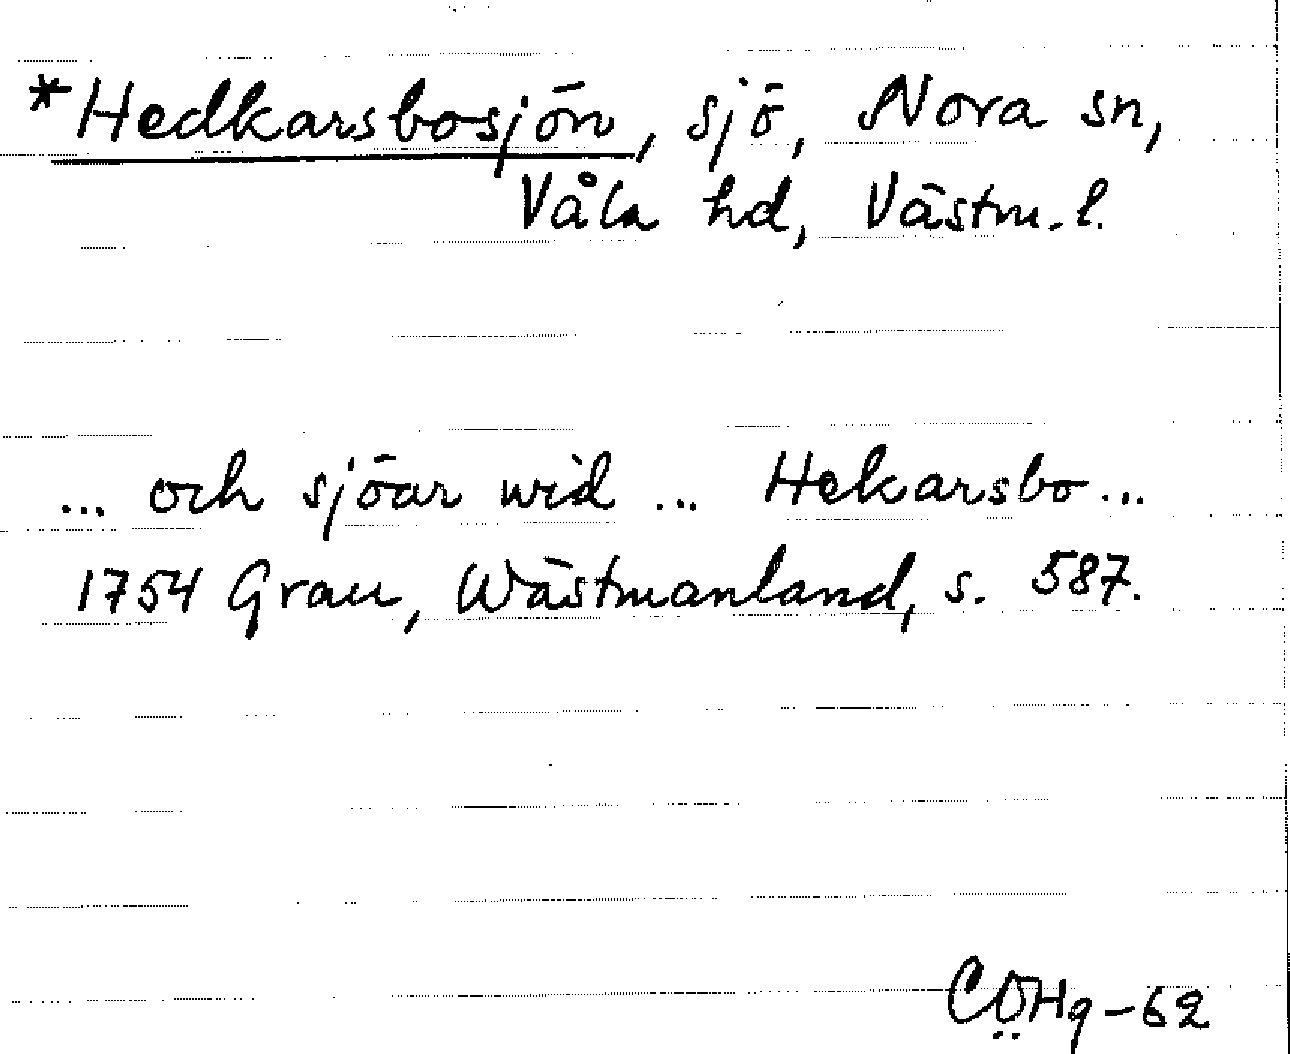 *Hedkarsbosjön, sjö, Nora sn,
Våla hd, Västm. l.
... och sjöar wid ... Hekarsbo ...
1754 Grau, Wästmanland, s. 587.
CÖHg-62